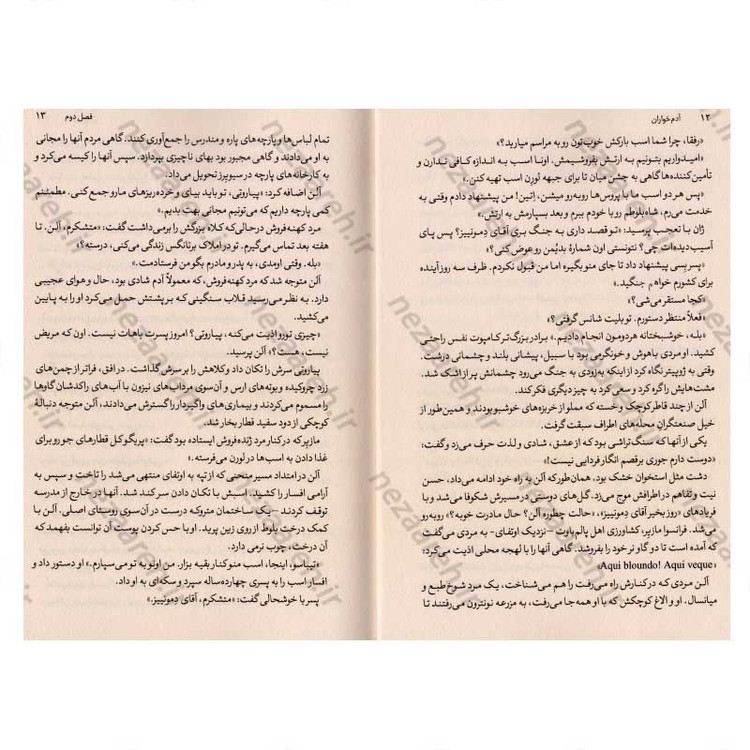 ۱۲ آدم‌خواران
«رفقا، چرا شما اسب بارکش خوب‌تون رو به مراسم میارید؟»
«امیدواریم بتونیم به ارتش بفروشیمش. اونا اسب به اندازه کافی ندارن و
تأمین‌کننده‌ها گاهی به جشن میان تا برای جبهه لورن اسب تهیه کنن.»
«پس هر دو اسب ما با پروس‌ها روبه‌رو میشن، اِتین! من پیشنهاد دادم وقتی به
خدمت می‌رم، شاه‌بلوطم رو با خودم ببرم و بعد بسپارمش به ارتش.»
ژان با تعجب پرسید: «تو قصد داری به جنگ بری آقای دِمونییز؟ پس پای
آسیب‌دیده‌ات چی؟ نتونستی اون شمارهٔ بدیُمن رو عوض کنی؟»
«پسر بسی پیشنهاد داد تا جای منو بگیره اما من قبول نکردم. ظرف سه روز آینده
برای کشورم خواهم جنگید.»
«کجا مستقر می‌شی؟»
«فعلاً منتظر دستورم. تو بلیت شانس گرفتی؟»
«بله، خوشبختانه هردومون انجام دادیم.» برادر بزرگ‌تر کامپوت نفس راحتی
کشید. او مردی باهوش و خونگرمی بود با سبیل، پیشانی بلند و چشمانی درشت.
وقتی به ژوپیتر نگاه کرد از اینکه به‌زودی به جنگ می‌رود چشمانش پر از اشک شد.
مشت‌هایش را گره کرد و سعی کرد به چیز دیگری فکر کند.
آلن از چند قاطر کوچک و خسته که مملو از خربزه‌های خوشبو بودند و همین‌طور از
خیل صنعتگران محله‌های اطراف سبقت گرفت.
یکی از آنها که سنگ‌تراشی بود که از عشق، شادی و لذت حرف می‌زد و گفت:
«دوست دارم جوری برقصم انگار فردایی نیست!»
دشت مثل استخوان خشک بود. همان‌طور که آلن به راه خود ادامه می‌داد، حسن
نیت و تفاهم در اطرافش موج می‌زد. گل‌های دوستی در مسیرش شکوفا می‌شد و با
فریادهای «روز بخیر آقای دِمونییز»، «حالت چطوره آلن؟ حال مادرت خوبه؟» روبه‌رو
می‌شد. فرانسوا مازیر، کشاورزی اهل پالم‌باوت –نزدیک اوتفای– به مردی می‌گفت
که آمده است تا دو گاو نر خود را بفروشد. گاهی آنها را با لهجه محلی اذیت می‌کرد:
«Aqui bloundo! Aqui veque»
آلن مردی که در کنارش راه می‌رفت را هم می‌شناخت، یک مرد شوخ‌طبع و
میانسال. او و الاغ کوچکش که با او همه‌جا می‌رفت، به مزرعه نونترون می‌رفتند تا
فصل دوم ۱۳
تمام لباس‌ها و پارچه‌های پاره و مندرس را جمع‌آوری کنند. گاهی مردم آنها را مجانی
به او می‌دادند و گاهی مجبور بود بهای ناچیزی بپردازد. سپس آنها را کیسه می‌کرد و
به کارخانه‌های پارچه در سیوبرز تحویل می‌داد.
آلن اضافه کرد: «پیاروتی، تو باید بیای و خرده‌ریزهای ما رو جمع کنی. مطمئنم
کمی پارچه داریم که می‌تونیم مجانی بهت بدیم.»
مرد کهنه‌فروش درحالی‌که کلاه بزرگش را برمی‌داشت گفت: «متشکرم، آلن. تا
هفته بعد تماس می‌گیرم. تو در املاک برتانگس زندگی می‌کنی، درسته؟»
«بله. وقتی اومدی، به پدر و مادرم بگو من فرستادمت.»
آلن متوجه شد که مرد کهنه‌فروش، که معمولاً آدم شادی بود، حال و هوای عجیبی
دارد. به نظر می‌رسید قلاب سنگینی که بر پشتش حمل می‌کرد او را به پایین
می‌کشید.
«چیزی تو رو اذیت می‌کنه، پیاروتی؟ امروز پسرت باهات نیست. اون که مریض
نیست، هست؟» آلن پرسید.
پیاروتی سرش را تکان داد و کلاهش را بر سرش گذاشت. در افق، فراتر از چمن‌های
زرد چروکیده و بوته‌های ارس و آن‌سوی مرداب‌های نیزون با آب‌های راکدشان گاوها
را مسموم می‌کردند و بیماری‌های واگیردار را گسترش می‌دادند، آلن متوجه دنبالهٔ
کوچکی از دود سفید قطار بخار شد.
مازیر که در کنار مرد ژنده‌فروش ایستاده بود گفت: «پریگو کل قطارهای جو رو برای
غذا دادن به اسب‌ها در لورن می‌فرسته.»
آلن در امتداد مسیر منحنی که از تپه به اوتفای منتهی می‌شد را تاخت و سپس به
آرامی افسار را کشید. اسبش با تکان دادن سر کند شد. آنها در خارج از مدرسه
توقف کردند –یک ساختمان متروکه درست در آن‌سوی روستای اصلی. آلن با
کمک درخت بلوط از روی زین پرید. او با حس کردن پوست آن توانست بفهمد که
آن درخت، چوب نرمی دارد.
«تیباسو، اینجا، اسب منو کنار بقیه بزار. من اونو به تو می‌سپارم.» او دستور داد و
افسار اسب را به پسری چهارده‌ساله سپرد و سکه‌ای به او داد.
پسر با خوشحالی گفت: «متشکرم، آقای دِمونییز.»
nezaareh.ir